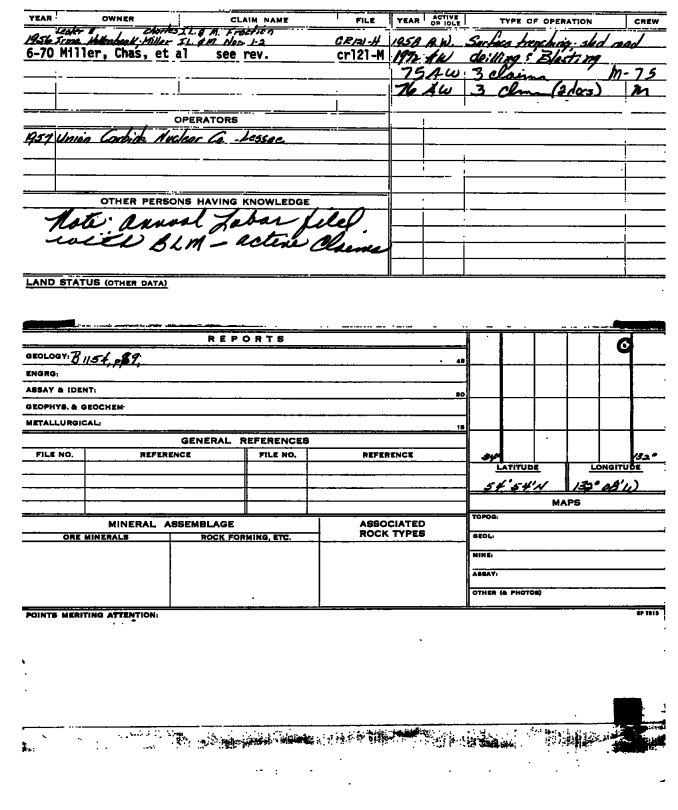 YEAR OWNER CLAIM NAME FILE YEAR ACTIVE OR IDLE TYPE OF OPERATION CREW
Lester & Charles I.L. & M. Fraction
1956 Irma Miller I.L. & M Nos. 1-2 CR121-H 1958 A.W. Surface trenching - sled road
6-70 Miller, Chas, et al see rev. cr121-M 1972 AW drilling & Blasting
75 AW 3 claims M-75
76 AW 3 clms (2docs) M
OPERATORS
1957 Union Carbide Nuclear Co - Lessee
OTHER PERSONS HAVING KNOWLEDGE
Note: Annual Labor filed
with BLM - active Claims
LAND STATUS (OTHER DATA)
REPORTS
GEOLOGY: B1154, p89,
45
ENGRG:
ASSAY & IDENT:
30
GEOPHYS. & GEOCHEM
METALLURGICAL:
15
GENERAL REFERENCES
54° 132°
FILE NO. REFERENCE FILE NO. REFERENCE
LATITUDE LONGITUDE
54° 54'N 132° 08'W
MAPS
MINERAL ASSEMBLAGE ASSOCIATED ROCK TYPES
ORE MINERALS ROCK FORMING, ETC.
TOPOG:
GEOL:
MINE:
ASSAY:
OTHER (& PHOTOS)
POINTS MERITING ATTENTION: